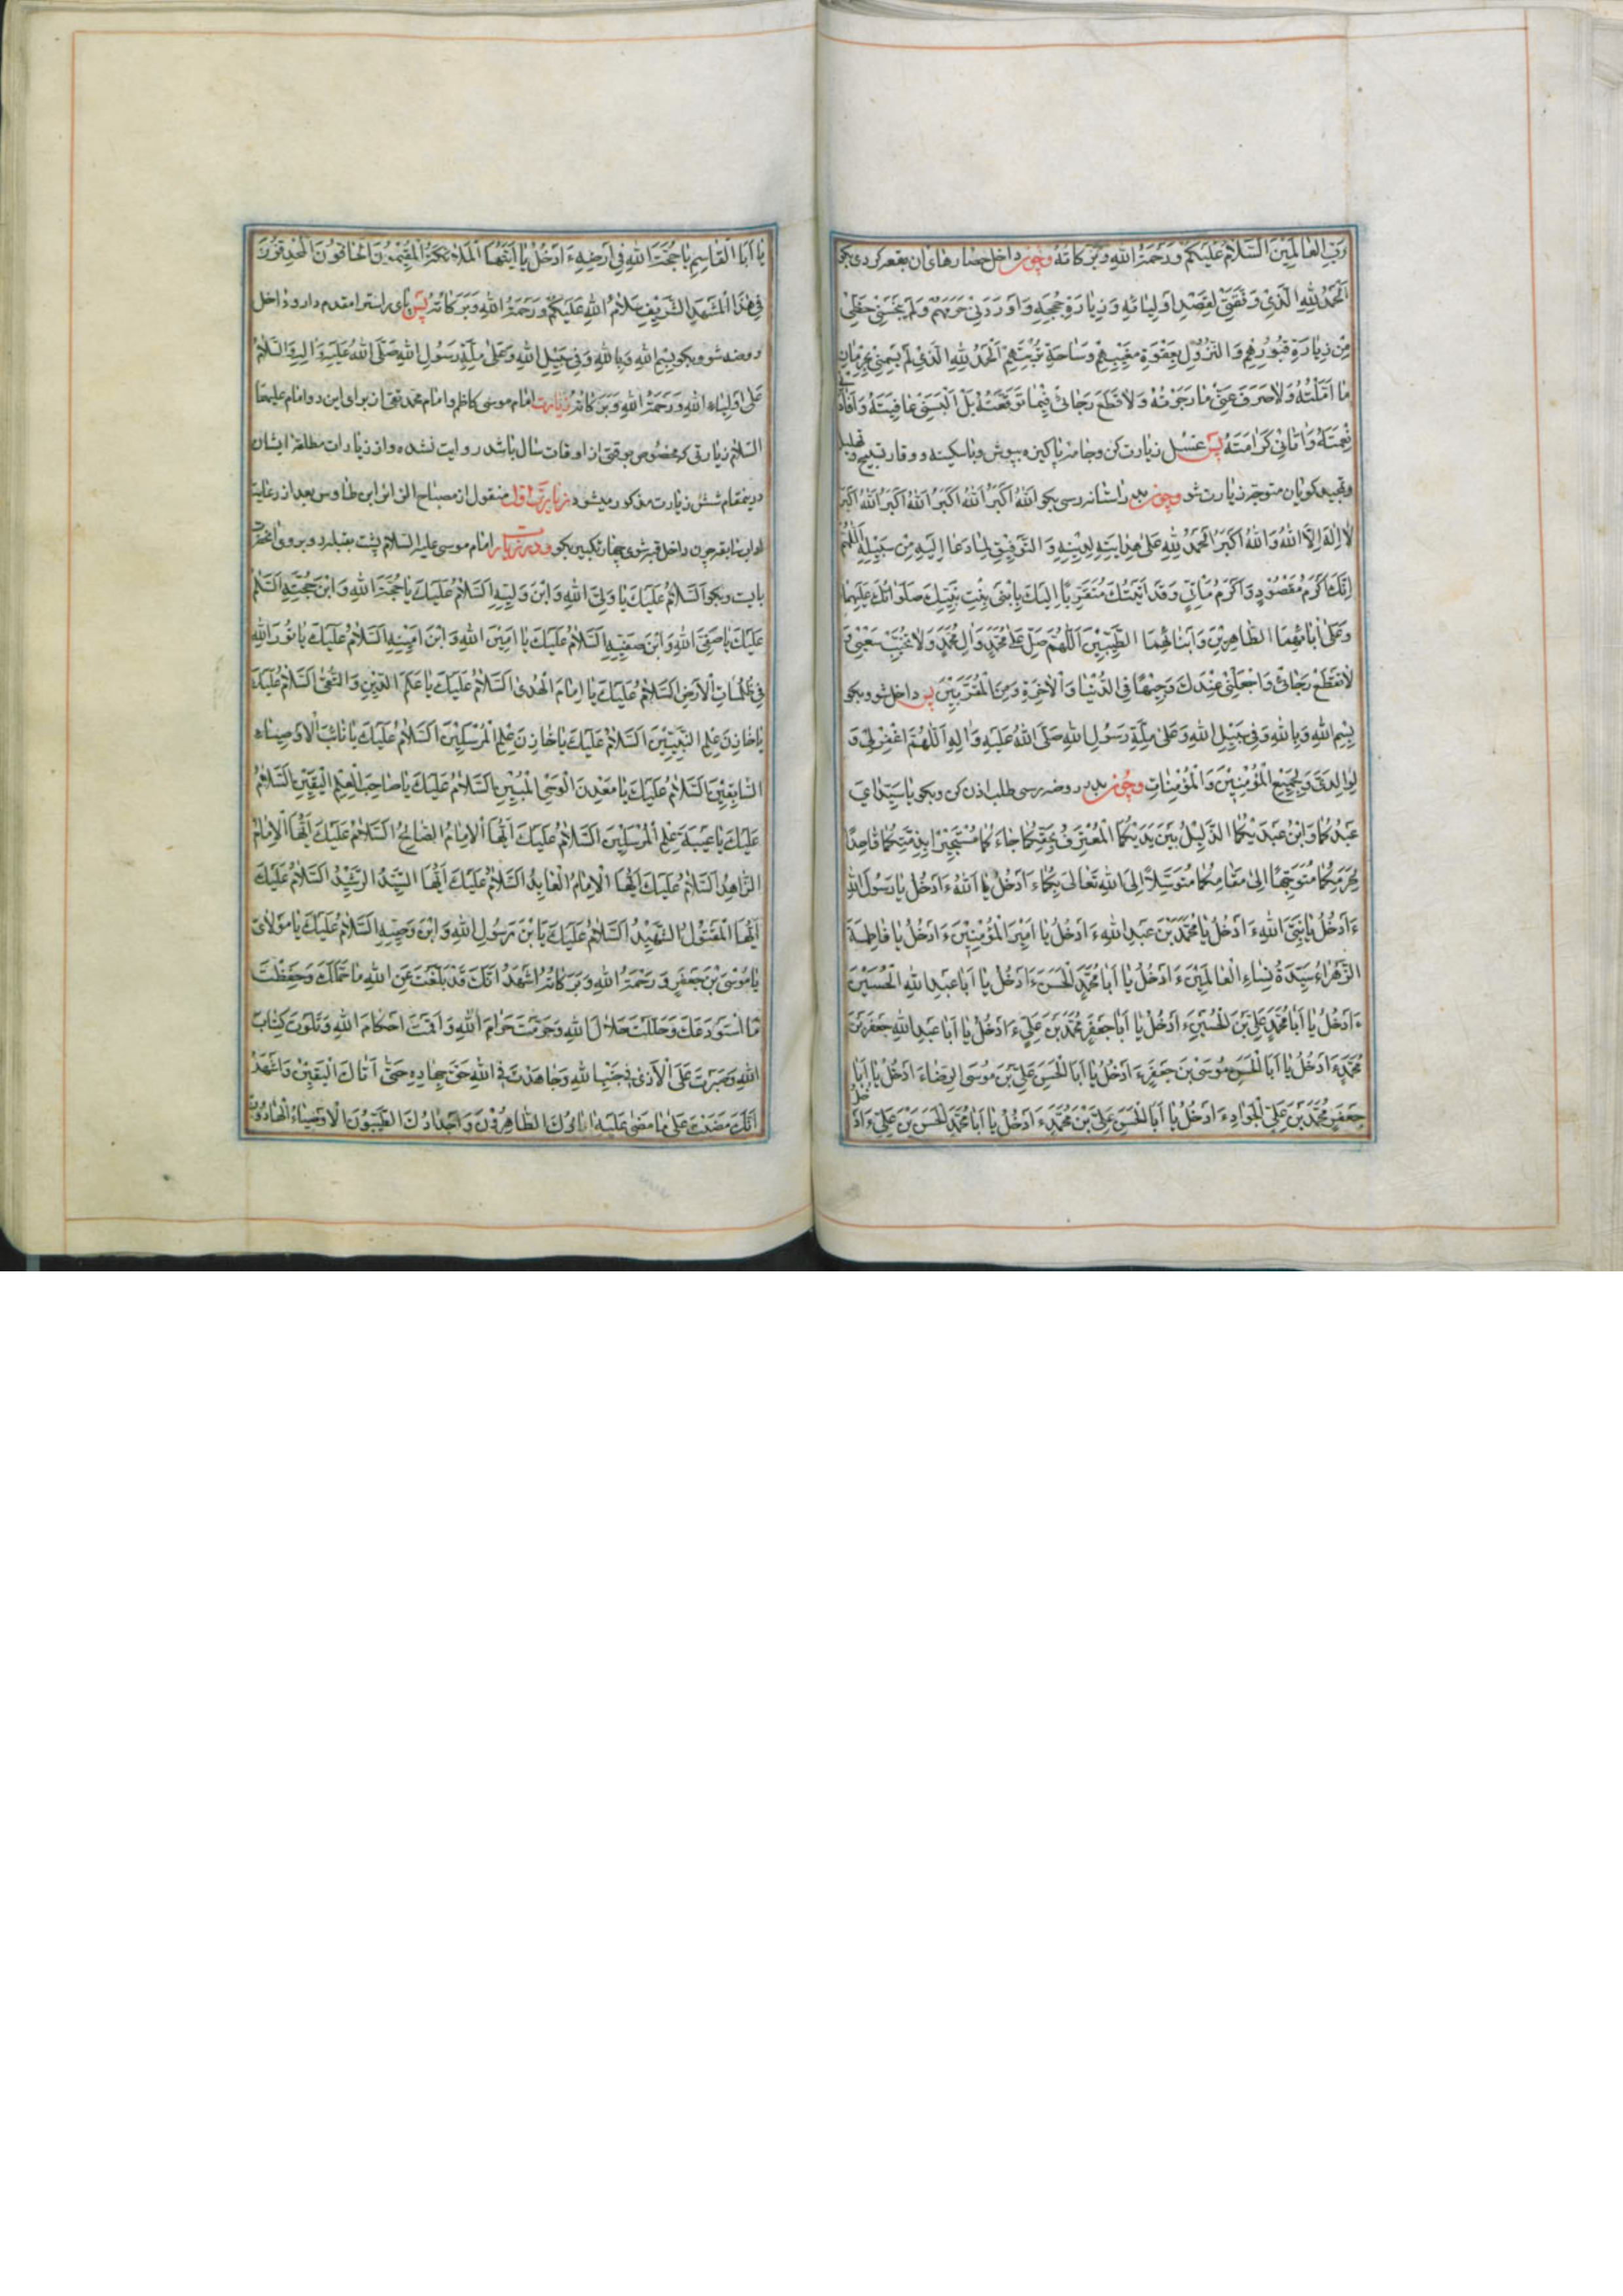 رَبِّ العٰالَمینَ السَّلامُ عَلَیْکُمْ وَ رَحْمَةُ اللهِ وَ بَرَکاتُهُ وچون داخل حصارهای آن بقعه کردی بکو
اَلْحَمْدُ لِلّٰهِ الَّذی وَفَّقَنی لِقَصْدِ اَوْلِیائِهِ وَ زِیارَةِ حُجَجِهِ وَ اَوْرَدَنی حَرَمَهُمْ وَ لَمْ یَبْخَسْنی حَظّی
مِنْ زِیارَةِ قُبُورِهِمْ وَ النُّزُولِ بِعَقْوَةِ مُغَیَّبِهِمْ وَ سٰاحَةِ تُرْبَتِهِمْ اَلْحَمْدُ لِلّٰهِ الَّذی لَمْ یَسِمْنی بِحِرْمانِ
مٰا اَمَّلْتُهُ وَ لاٰ صَرَفَ عَنّی مٰا رَجَوْتُهُ وَ لاٰ قَطَعَ رَجٰائی فیمٰا تَوَقَّعْتُهُ بَلْ اَلْبَسَنی عٰافِیَتَهُ وَ اَفادَنی
نِعْمَتَهُ وَ اٰتٰانی کَرٰامَتَهُ پس غسل زیارت کن و جامه پاکیزه بپوش و باسکینه و وقار تسبیح و تهلیل
و تمجید کویان متوجه زیارت شو وچون بدر راستانه رسی بکو اَللهُ اَکْبَرُ اَللهُ اَکْبَرُ اَللهُ اَکْبَرُ اَللهُ اَکْبَرُ
لاٰ اِلٰهَ اِلاَّ اللهُ وَ اللهُ اَکْبَرُ اَلْحَمْدُ لِلّٰهِ عَلیٰ هِدٰایَتِهِ لِدینِهِ وَ التَّوْفیقِ لِمٰا دَعٰا اِلَیْهِ مِنْ سَبیلِهِ اَللّٰهُمَّ
اِنَّکَ اَکْرَمُ مَقْصُودٍ وَ اَکْرَمُ مَأْتِیٍّ وَ قَدْ اَتَیْتُکَ مُتَقَرِّبًا اِلَیْکَ بِابْنَیْ بِنْتِ نَبِیِّکَ صَلَوٰاتُکَ عَلَیْهِمٰا
وَ عَلیٰ اٰبٰائِهِمَا الطّٰاهِرینَ وَ اَبْنٰائِهِمَا الطَّیِّبینَ اَللّٰهُمَّ صَلِّ عَلیٰ مُحَمَّدٍ وَ اٰلِ مُحَمَّدٍ وَ لاٰ تُخَیِّبْ سَعْیی وَ
لاٰ تَقْطَعْ رَجٰائی وَ اجْعَلْنی عِنْدَکَ وَجیهًا فِی الدُّنْیٰا وَ الْاٰخِرَةِ وَ مِنَ الْمُقَرَّبینَ پس داخل شو و بکو
بِسْمِ اللهِ وَ بِاللهِ وَ فی سَبیلِ اللهِ وَ عَلیٰ مِلَّةِ رَسُولِ اللهِ صَلَّی اللهُ عَلَیْهِ وَ اٰلِهِ اَللّٰهُمَّ اغْفِرْ لی وَ
لِوٰالِدَیَّ وَ لِجَمیعِ الْمُؤْمِنینَ وَ الْمُؤْمِنٰاتِ وچون بدر روضه رسی طلب اذن کن و بکو یٰا سَیِّدٰایَ
عَبْدُکُمٰا وَ ابْنُ عَبْدَیْکُمَا الذَّلیلُ بَیْنَ یَدَیْکُمَا الْمُعْتَرِفُ بِحَقِّکُمٰا جٰاءَکُمٰا مُسْتَجیرًا بِذِمَّتِکُمٰا قٰاصِدًا
بِحَرَمِکُمٰا مُتَوَجِّهًا اِلیٰ مَقٰامِکُمٰا مُتَوَسِّلاً اِلَی اللهِ تَعٰالیٰ بِکُمٰا ءَاَدْخُلُ یٰا اَللهُ ءَاَدْخُلُ یٰا رَسُولَ اللهِ
ءَاَدْخُلُ یٰا نَبِیَّ اللهِ ءَاَدْخُلُ یٰا مُحَمَّدَ بْنَ عَبْدِ اللهِ ءَاَدْخُلُ یٰا اَمیرَ الْمُؤْمِنینَ ءَاَدْخُلُ یٰا فٰاطِمَةَ
الزَّهْرٰاءِ سَیِّدَةَ نِسٰاءِ الْعٰالَمینَ ءَاَدْخُلُ یٰا اَبٰا مُحَمَّدٍ الْحَسَنَ ءَاَدْخُلُ یٰا اَبٰا عَبْدِ اللهِ الْحُسَیْنَ
ءَاَدْخُلُ یٰا اَبٰا مُحَمَّدٍ عَلِیَّ بْنَ الْحُسَیْنِ ءَاَدْخُلُ یٰا اَبٰا جَعْفَرٍ مُحَمَّدَ بْنَ عَلِیٍّ ءَاَدْخُلُ یٰا اَبٰا عَبْدِ اللهِ جَعْفَرَ بْنَ
مُحَمَّدٍ ءَاَدْخُلُ یٰا اَبَا الْحَسَنِ مُوسَی بْنَ جَعْفَرٍ ءَاَدْخُلُ یٰا اَبَا الْحَسَنِ عَلِیَّ بْنَ مُوسَی الرِّضٰا ءَاَدْخُلُ یٰا اَبٰا
جَعْفَرٍ مُحَمَّدَ بْنَ عَلِیٍّ الْجَوٰادِ ءَاَدْخُلُ یٰا اَبَا الْحَسَنِ عَلِیَّ بْنَ مُحَمَّدٍ ءَاَدْخُلُ یٰا اَبٰا مُحَمَّدٍ الْحَسَنَ بْنَ عَلِیٍّ ءَاَدْخُلُ
یٰا اَبَا الْقٰاسِمِ یٰا حُجَّةَ اللهِ فی اَرْضِهِ ءَاَدْخُلُ یٰا اَیَّتُهَا الْمَلاٰئِکَةُ الْمُقیمُونَ الْحٰافُّونَ الْمُحْدِقُونَ
فی هٰذَا الْمَشْهَدِ الشَّریفِ سَلاٰمُ اللهِ عَلَیْکُمْ وَ رَحْمَةُ اللهِ وَ بَرَکٰاتُهُ پس پای راست را مقدم دار و داخل
روضه شو و بکو بِسْمِ اللهِ وَ بِاللهِ وَ فی سَبیلِ اللهِ وَ عَلیٰ مِلَّةِ رَسُولِ اللهِ صَلَّی اللهُ عَلَیْهِ وَ اٰلِهِ وَ السَّلاٰمُ
عَلیٰ اَوْلِیٰاءِ اللهِ وَ رَحْمَةُ اللهِ وَ بَرَکٰاتُهُ زیارت امام موسی کاظم و امام محمد تقی از برای این دو امام علیهما
السلام زیارتی که مخصوص بوقتی از اوقات سال باشد روایت نشده و از زیارات مطلقه ایشان
درینمقام شش زیارت مذکور میشود زیارت اول منقول از مصباح الزائر ابن طاوس بعد از رعایت
اداب سابقه چون داخل قبه شوی چهار تکبیر بکو و در زیارت امام موسی علیه السلام پشت بقبله رو بروی انحضرت
بایست و بکو اَلسَّلاٰمُ عَلَیْکَ یٰا وَلِیَّ اللهِ وَ ابْنَ وَلِیِّهِ اَلسَّلاٰمُ عَلَیْکَ یٰا حُجَّةَ اللهِ وَ ابْنَ حُجَّتِهِ اَلسَّلاٰمُ
عَلَیْکَ یٰا صَفِیَّ اللهِ وَ ابْنَ صَفِیِّهِ اَلسَّلاٰمُ عَلَیْکَ یٰا اَمینَ اللهِ وَ ابْنَ اَمینِهِ اَلسَّلاٰمُ عَلَیْکَ یٰا نُورَ اللهِ
فی ظُلُمٰاتِ الْاَرْضِ اَلسَّلاٰمُ عَلَیْکَ یٰا اِمٰامَ الْهُدیٰ اَلسَّلاٰمُ عَلَیْکَ یٰا عَلَمَ الدّینِ وَ التُّقیٰ اَلسَّلاٰمُ عَلَیْکَ
یٰا خٰازِنَ عِلْمِ النَّبِیّینَ اَلسَّلاٰمُ عَلَیْکَ یٰا خٰازِنَ عِلْمِ الْمُرْسَلینَ اَلسَّلاٰمُ عَلَیْکَ یٰا نٰائِبَ الْاَوْصِیٰاءِ
السّٰابِقینَ اَلسَّلاٰمُ عَلَیْکَ یٰا مَعْدِنَ الْوَحْیِ الْمُبینِ اَلسَّلاٰمُ عَلَیْکَ یٰا صٰاحِبَ الْعِلْمِ الْیَقینِ اَلسَّلاٰمُ
عَلَیْکَ یٰا عَیْبَةَ عِلْمِ الْمُرْسَلینَ اَلسَّلاٰمُ عَلَیْکَ اَیُّهَا الْاِمٰامُ الصّٰالِحُ اَلسَّلاٰمُ عَلَیْکَ اَیُّهَا الْاِمٰامُ
الزّٰاهِدُ اَلسَّلاٰمُ عَلَیْکَ اَیُّهَا الْاِمٰامُ الْعٰابِدُ اَلسَّلاٰمُ عَلَیْکَ اَیُّهَا السَّیِّدُ الرَّشیدُ اَلسَّلاٰمُ عَلَیْکَ
اَیُّهَا الْمَقْتُولُ الشَّهیدُ اَلسَّلاٰمُ عَلَیْکَ یَا بْنَ رَسُولِ اللهِ وَ ابْنَ وَصِیِّهِ اَلسَّلاٰمُ عَلَیْکَ یٰا مَوْلاٰیَ
یٰا مُوسَی بْنَ جَعْفَرٍ وَ رَحْمَةُ اللهِ وَ بَرَکٰاتُهُ اَشْهَدُ اَنَّکَ قَدْ بَلَّغْتَ عَنِ اللهِ مٰا حَمَّلَکَ وَ حَفِظْتَ
مَا اسْتَوْدَعَکَ وَ حَلَّلْتَ حَلاٰلَ اللهِ وَ حَرَّمْتَ حَرٰامَ اللهِ وَ اَقَمْتَ اَحْکٰامَ اللهِ وَ تَلَوْتَ کِتٰابَ
اللهِ وَ صَبَرْتَ عَلَی الْاَذیٰ فی جَنْبِ اللهِ وَ جٰاهَدْتَ فِی اللهِ حَقَّ جِهٰادِهِ حَتّیٰ اَتٰاکَ الْیَقینُ وَ اَشْهَدُ
اَنَّکَ مَضَیْتَ عَلیٰ مٰا مَضیٰ عَلَیْهِ اٰبٰاؤُکَ الطّٰاهِرُونَ وَ اَجْدٰادُکَ الطَّیِّبُونَ الْاَوْصِیٰاءُ الْهٰادُونَ